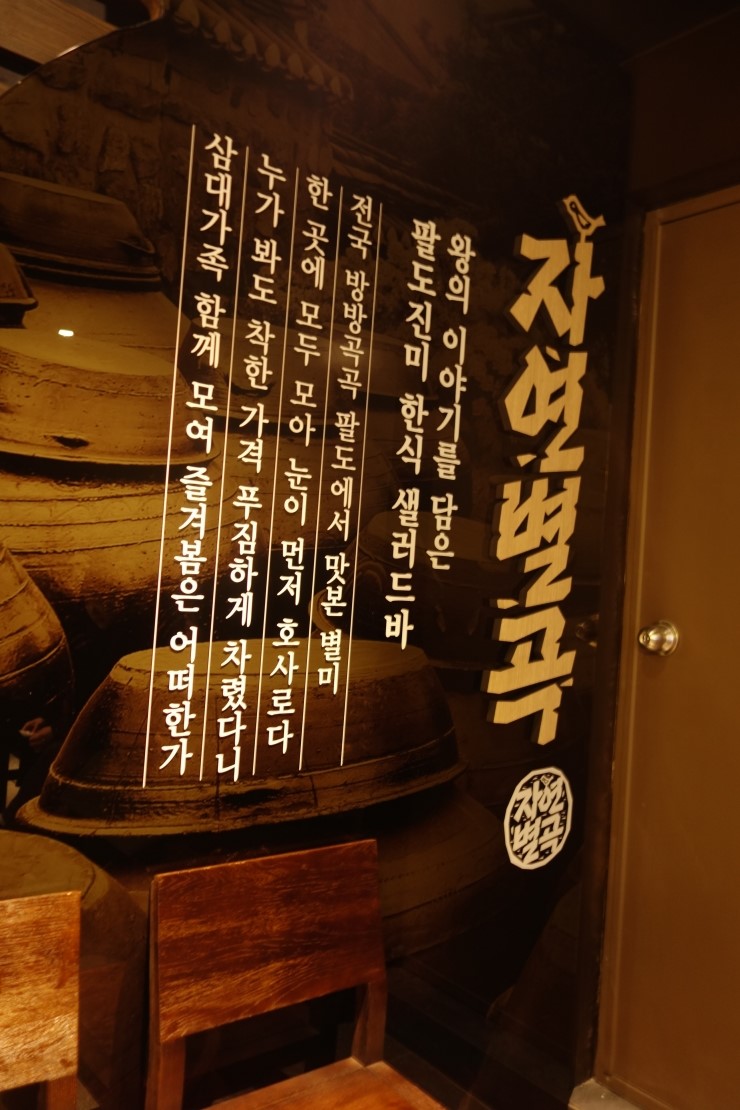 자연별곡
자연
별곡
왕의 이야기를 담은
팔도진미 한식 샐러드바
전국 방방곡곡 팔도에서 맛본 별미
한 곳에 모두 모아 눈이 먼저 호사로다
누가 봐도 착한 가격 푸짐하게 차렸다니
삼대가족 함께 모여 즐겨봄은 어떠한가